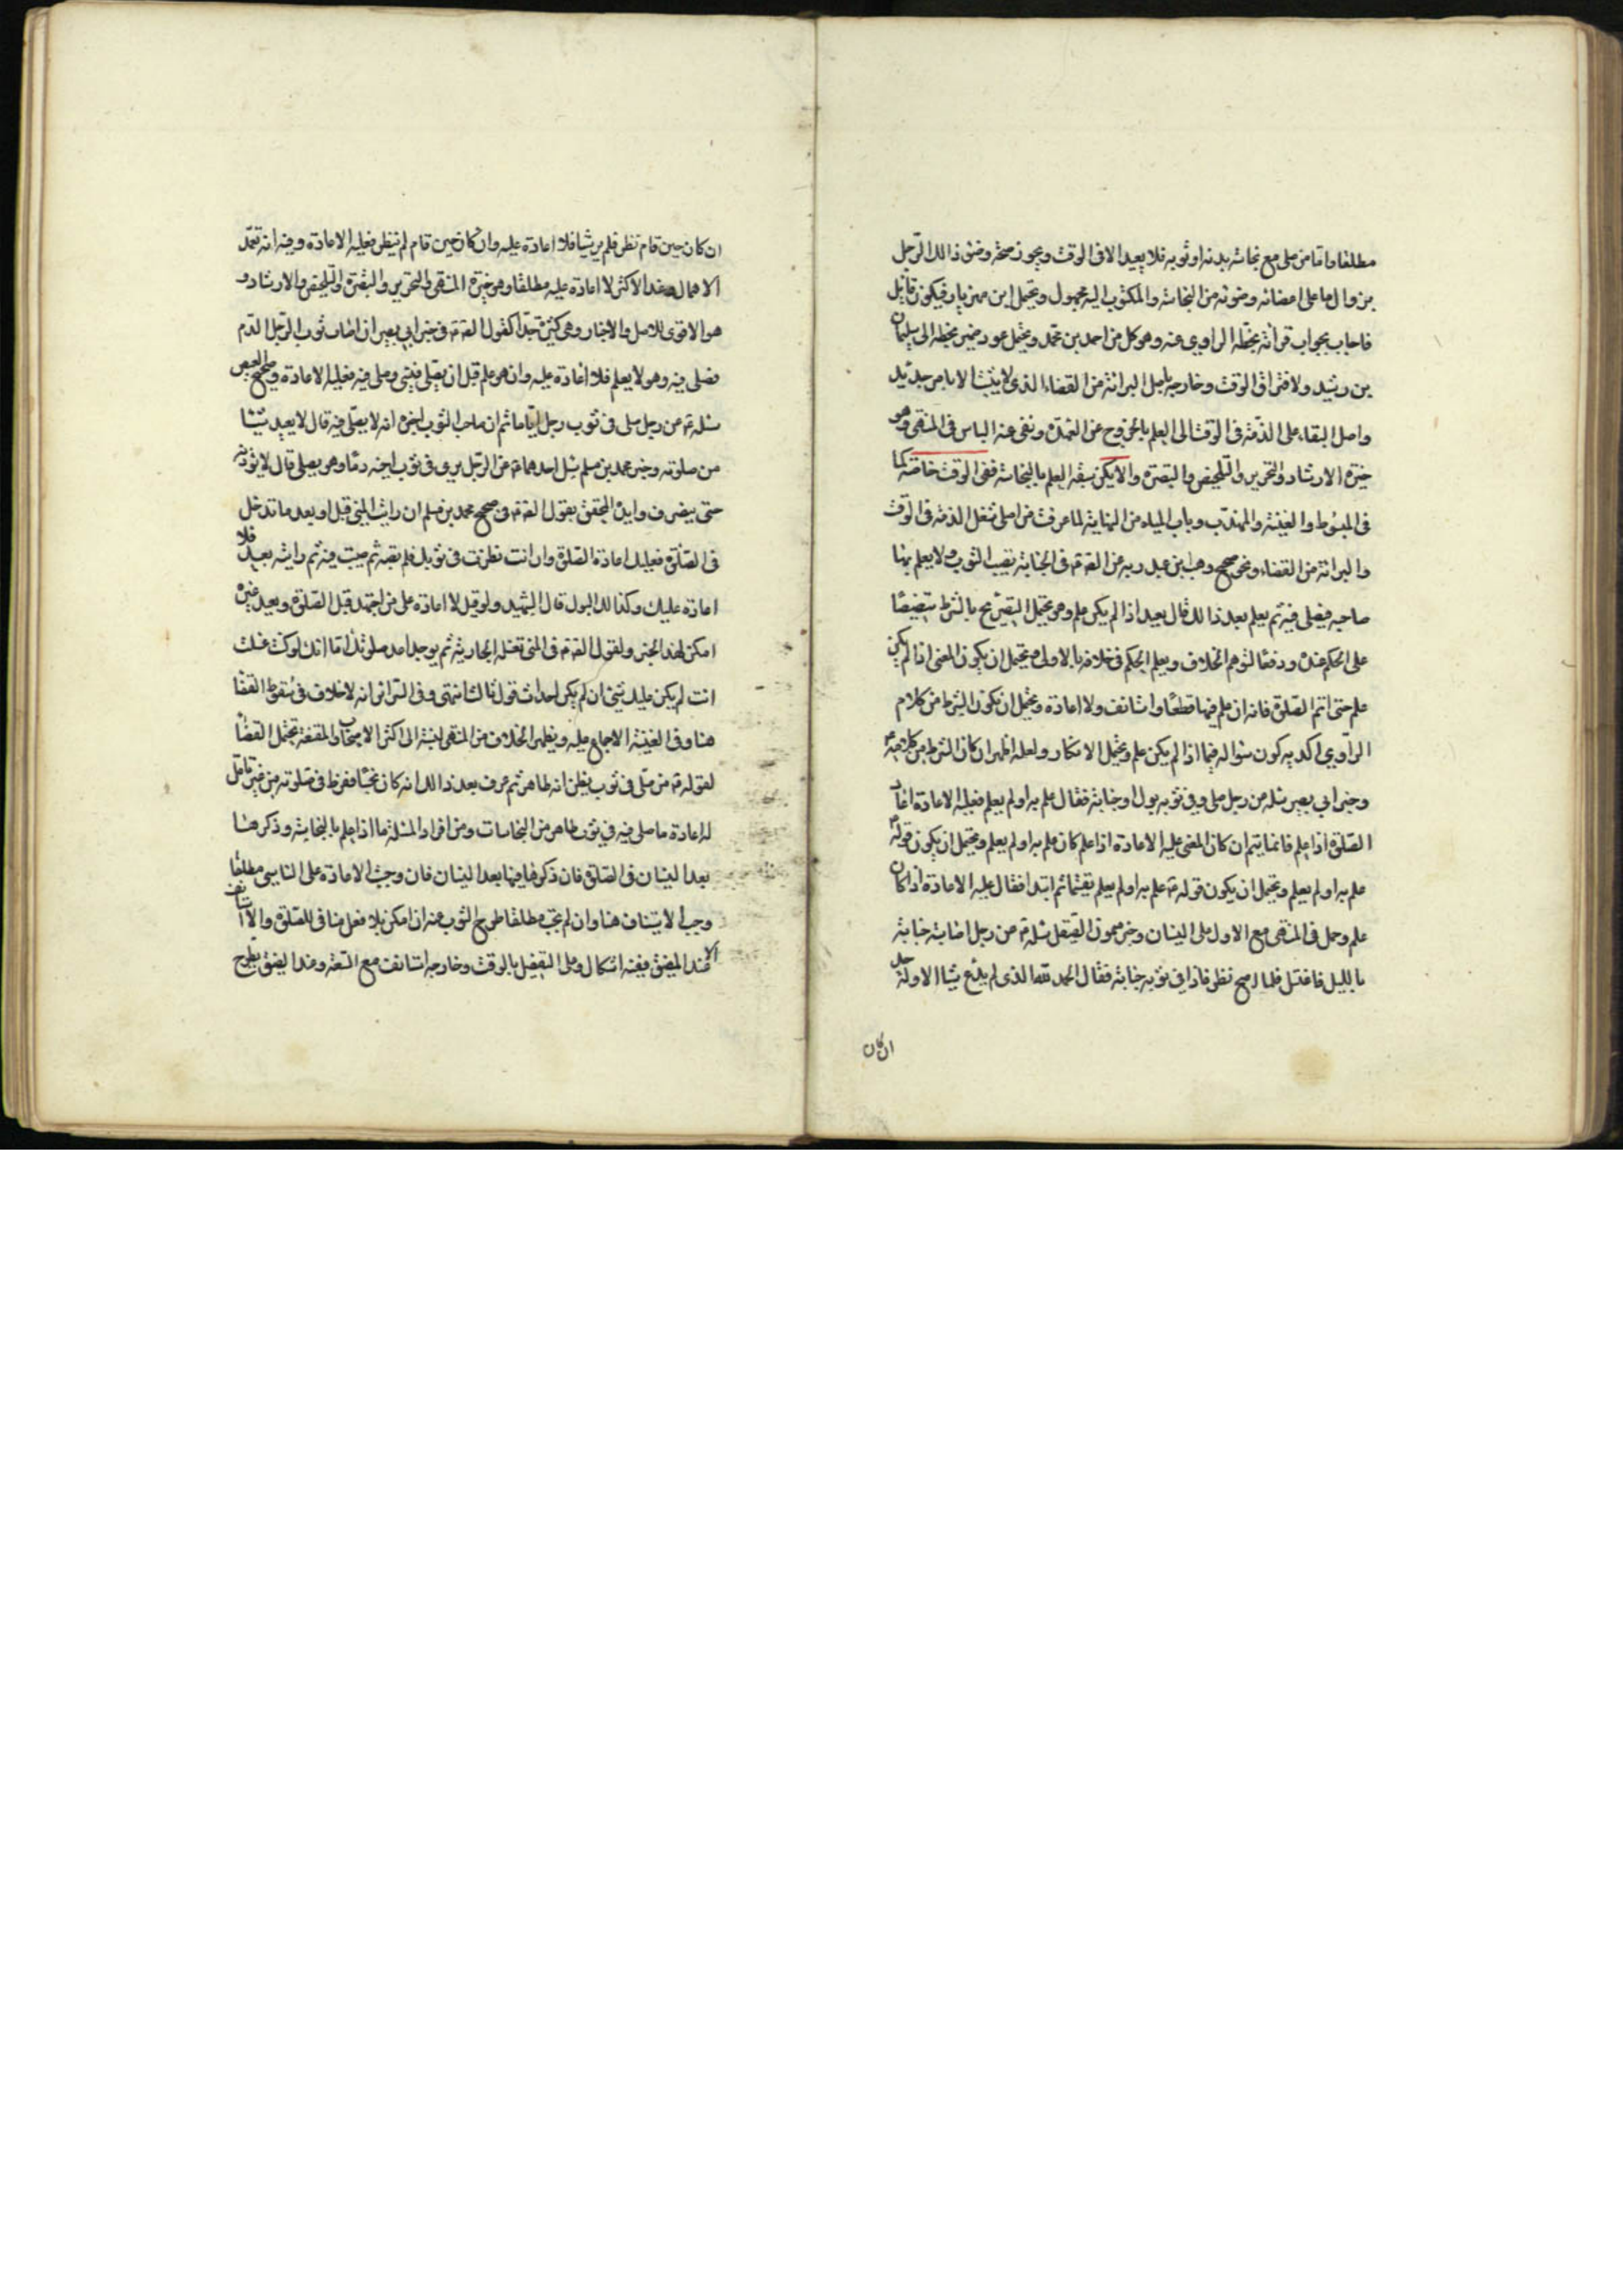 مطلقا واما من صلى مع نجاسة بدنه او ثوبه فلا يعيد الا في الوقت ويجوز صحة وضوء ذالك الرجل
بزوال ما على اعضائه وضوئه من النجاسة والمكتوب اليه مجهول ويحتمل ابن مهزيار فيكون قائل
فاجاب بجواب قرأته بخطه الراوي عنه وهو كل من احمد بن محمد ويحتمل عود ضمير بخطه الى سليمان
بن رشيد ولافتراق الوقت وخارجه باصل البرائة من القضاء الذي لا يثبت الا بامر جديد
واصل البقاء على الذمة في الوقت الى العلم بالخروج عن العهدة ونفى عنه الباس في المنتهى وهو
خيرة الارشاد والتحرير والتلخيص والتبصرة والا يكن سبقه العلم بالنجاسة ففي الوقت خاصة كما
في المبسوط والغنية والمهذب وباب المياه من النهاية لما عرفت من اصلى شغل الذمة في الوقت
والبرائة من القضاء ونحو صحيح وهب بن عبد ربه عن الصادق في الجنابة يصيب الثوب ولا يعلم بها
صاحبه فيصلى فيه ثم يعلم بعد ذالك قال يعيد اذا لم يكن علم وهو يحتمل التصريح بالشرط تنصيصا
على الحكم عنده ودفعا لتوهم الخلاف ويعلم الحكم في خلافه بالاولى ويحتمل ان يكون المعنى اذا لم يكن
علم حتى اتم الصلوة فانه ان علم فيها قطعها واستانف ولا اعادة ويحتمل ان يكون الشرط من كلام
الراوي اكد به كون سواله فيما اذا لم يكن علم ويحتمل الانكار ولعله اظهر ان كان الشرط من كلامه
وخبر ابي بصير سئله عن رجل صلى وفي ثوبه بول او جنابة فقال علم به او لم يعلم فعليه الاعادة اعادة
الصلوة اذا علم فانما يتم ان كان المعنى عليه الاعادة اذا علم كان علم به او لم يعلم ويحتمل ان يكون قوله
علم به او لم يعلم ويحتمل ان يكون قوله علم به او لم يعلم تقسيما ثم ابتدا فقال عليه الاعادة اذا كان
علم وحمل في المنتهى مع الاول على النسيان وخبر ميمون الصيقل سئله عن رجل اصابته جنابة
بالليل فاغتسل فلما اصبح نظر فاذا في ثوبه جنابة فقال الحمد لله الذي لم يدع شيئا الا وله حد
ان كان
ان كان حين قام نظر فلم ير شيئا فلا اعادة عليه وان كان حين قام لم ينظر فعليه الاعادة وفيه انه تعمد
الاهمال وعند الاكثر لا اعادة عليه مطلقا وهو خيرة المنتهى والتحرير والتبصرة والتلخيص والارشاد و
هو الاقوى للاصل والاخبار وهي كثيرة جدا كقول الصادق في خبر ابي بصير ان اصاب ثوب الرجل الدم
فصلى فيه وهو لا يعلم فلا اعادة عليه وان هو علم قبل ان يصلى فنسى وصلى فيه فعليه الاعادة وصحيح العيص
سئله عن رجل صلى في ثوب رجل اياما ثم ان صاحب الثوب اخبره انه لا يصلى فيه قال لا يعيد شيئا
من صلوته وخبر محمد بن مسلم سئل احدهما عن الرجل يرى في ثوب اخيه دما وهو يصلى قال لا يؤذنه
حتى ينصرف وايده المحقق بقول الصادق في صحيح محمد بن مسلم ان رايت المنى قبل او بعد ما تدخل
في الصلوة فعليك اعادة الصلوة وان انت نظرت في ثوبك فلم تصبه ثم صليت فيه ثم رايته بعد فلا
اعادة عليك وكذالك البول قال الشهيد ولو قيل لا اعادة على من اجتهد قبل الصلوة ويعيد غيره
امكن لهذا الخبر ولقول الصادق في المنى تغسله الجارية ثم يوجد اعد صلوتك اما انك لو كنت غسلت
انت لم يكن عليك شيء ان لم يكن احداث قول ثالث انتهى وفي السرائر انه لا خلاف في سقوط القضا
هنا وفي الغنية الاجماع عليه ويظهر الخلاف من المنتهى لنسبته الى اكثر الاصحاب والمقنعة تحتمل القضا
لقوله من صلى في ثوب يظن انه طاهر ثم عرف بعد ذالك انه كان نجسا ففرط في صلوته من غير تامل
له اعادة ما صلى فيه في ثوب طاهر من النجاسات ومن افراد المسئلة ما اذا علم بالنجاسة وذكر هنا
بعد النسيان في الصلوة فان ذكرها فيها بعد النسيان فان وجبت الاعادة على الناسى مطلقا
وجب الاستيناف هنا وان لم تجب مطلقا طرح الثوب عنه ان امكن بلا فعل مناف للصلوة والا استانف
الا عند الضيق ففيه اشكال وعلى التفصيل بالوقت وخارجه استانف مع السعة وعند الضيق يطرح